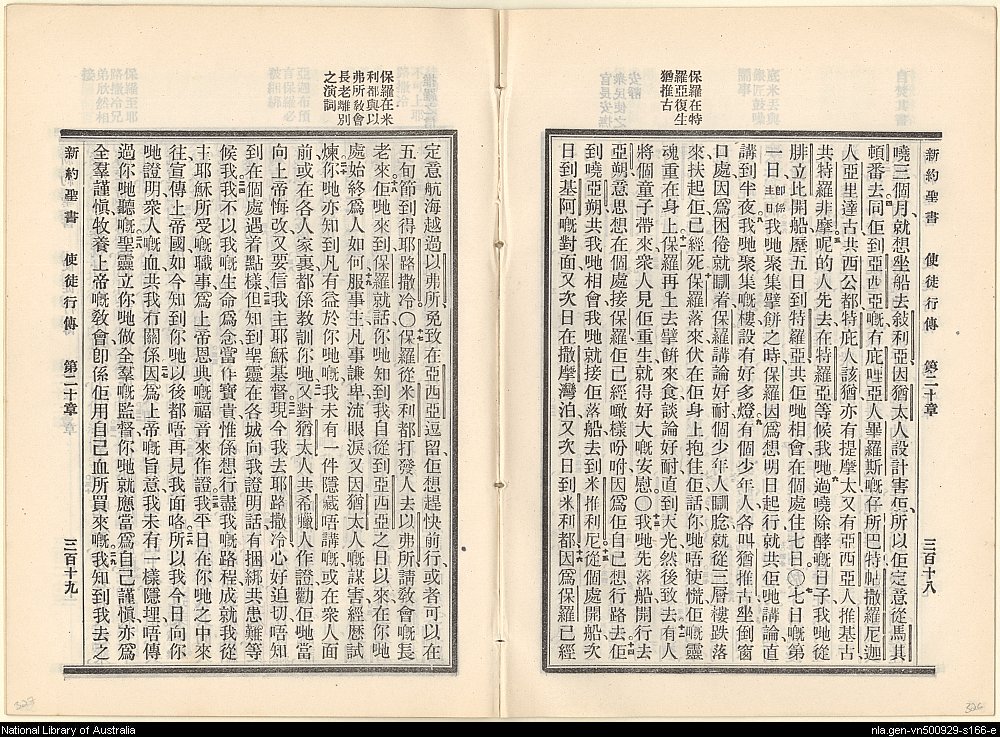 新約聖書 使徒行傳 第二十章 三百十八
保羅在特
羅亞復生
猶推古
嘵三個月就想坐船去敍利亞因猶太人設計害佢所以佢定意從馬其
頓番去同佢到亞西亞嘅有庇哩亞人畢羅斯嘅仔所巴特帖撒羅尼迦
人亞里達古共西公都特庇人該猶亦有提摩太又有亞西亞人推基古
共特羅非摩呢的人先去在特羅亞等候我哋過嘵除酵嘅日子我哋從
腓立比開船歷五日到特羅亞共佢哋相會在個處住七日〇七日嘅第
一日卽係主日我哋聚集擘餅之時保羅因爲想明日起行就共佢哋講論直
講到半夜我哋聚集嘅樓設有好多燈有個少年人名叫猶推古坐倒窗
口處因爲困倦就瞓着保羅講論好耐個少年人瞓腍就從三層樓跌落
來扶起佢已經死保羅落來伏在佢身上抱住佢話你哋唔使慌佢嘅靈
魂重在身上保羅再上去擘餅來食談論好耐直到天光然後致去有人
將個童子帶來衆人見佢重生就得好大嘅安慰〇我哋先落船開行去
亞朔意思想在個處接保羅佢已經噉樣吩咐因爲佢自己想行路去佢
到嘵亞朔共我哋相會我哋就接佢落船去到米推利尼從個處開船次
日到基阿嘅對面又次日在撒摩灣泊又次日到米利都因爲保羅已經
保羅在米
利都與以
弗所敎會
長老離別
之演詞
定意航海越過以弗所免致在亞西亞逗留佢想趕快前行或者可以在
五旬節到得耶路撒冷〇保羅從米利都打發人去以弗所請敎會嘅長
老來佢哋來到保羅就話你哋知到我自從到亞西亞之日以來在你哋
處始終爲人如何服事主凡事謙卑流眼淚又因猶太人嘅謀害經歷試
煉你哋亦知到凡有益於你哋嘅我未有一件隱藏唔講嘅或在衆人面
前或在各人家裏都係敎訓你哋又對猶太人共希臘人作證勸佢哋當
向上帝悔改又要信我主耶穌基督現今我去耶路撒冷心好迫切唔知
到在個處遇着點樣但知到聖靈在各城向我證明話有捆綁共患難等
候我我不以我嘅生命爲念當作寶貴惟係想行盡我嘅路程成就我從
主耶穌所受嘅職事爲上帝恩典嘅福音來作證我平日在你哋之中來
往宣傳上帝國如今知到你哋以後都唔再見我面咯所以我今日向你
哋證明衆人嘅血共我冇關係因爲上帝嘅旨意我未有一樣隱埋唔傳
過你哋聽嘅聖靈立你哋做全羣嘅監督你哋就應當爲自己謹愼亦爲
全羣謹愼牧養上帝嘅敎會卽係佢用自己血所買來嘅我知到我去之
新約聖書 使徒行傳 第二十章 三百十九
327
326
National Library of Australia
nla.gen-vn500929-s166-e